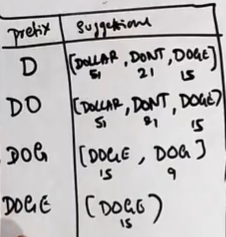 prefix Suggestions
D [DOLLAR, DONT, DOGE]
51 21 15
DO [DOLLAR, DONT, DOGE)
51 21 15
DOG [DOGE, DOG]
15 9
DOGE (DOGE)
15